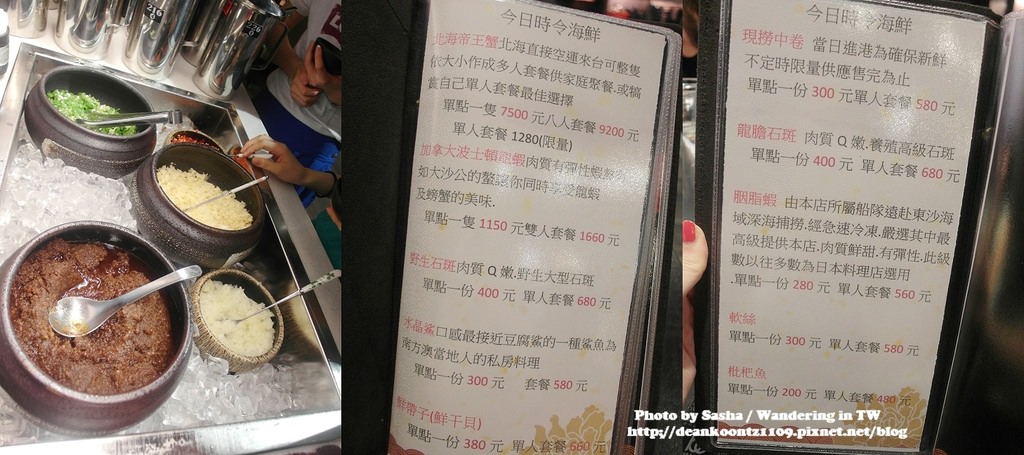 今日時令海鮮
北海帝王蟹北海直接空運來台可整隻
依大小作成多人套餐供家庭聚餐.或犒
賞自己單人套餐最佳選擇
單點一隻 7500 元八人套餐 9200 元
單人套餐 1280(限量)
加拿大波士頓龍蝦肉質有彈性
如大沙公的螯讓你同時享受龍蝦
及螃蟹的美味.
單點一隻 1150 元雙人套餐 1660 元
野生石斑肉質 Q 嫩.野生大型石斑
單點一份 400 元 單人套餐 680 元
水晶鯊口感最接近豆腐鯊的一種鯊魚為
南方澳當地人的私房料理
單點一份 300 元 套餐 580 元
鮮帶子(鮮干貝)
單點一份 380 元 單人套餐 660 元
今日時令海鮮
現撈中卷 當日進港為確保新鮮
不定時限量供應售完為止
單點一份 300 元單人套餐 580 元
龍膽石斑 肉質 Q 嫩.養殖高級石斑
單點一份 400 元 單人套餐 680 元
胭脂蝦 由本店所屬船隊遠赴東沙海
域深海捕撈.經急速冷凍.嚴選其中最
高級提供本店.肉質鮮甜.有彈性.此級
數以往多數為日本料理店選用
.單點一份 280 元 單人套餐 560 元
軟絲
單點一份 300 元 單人套餐 580 元
枇杷魚
單點一份 200 元 單人套餐 480 元
Photo by Sasha / Wandering in TW
http://deankoontz1109.pixnet.net/blog